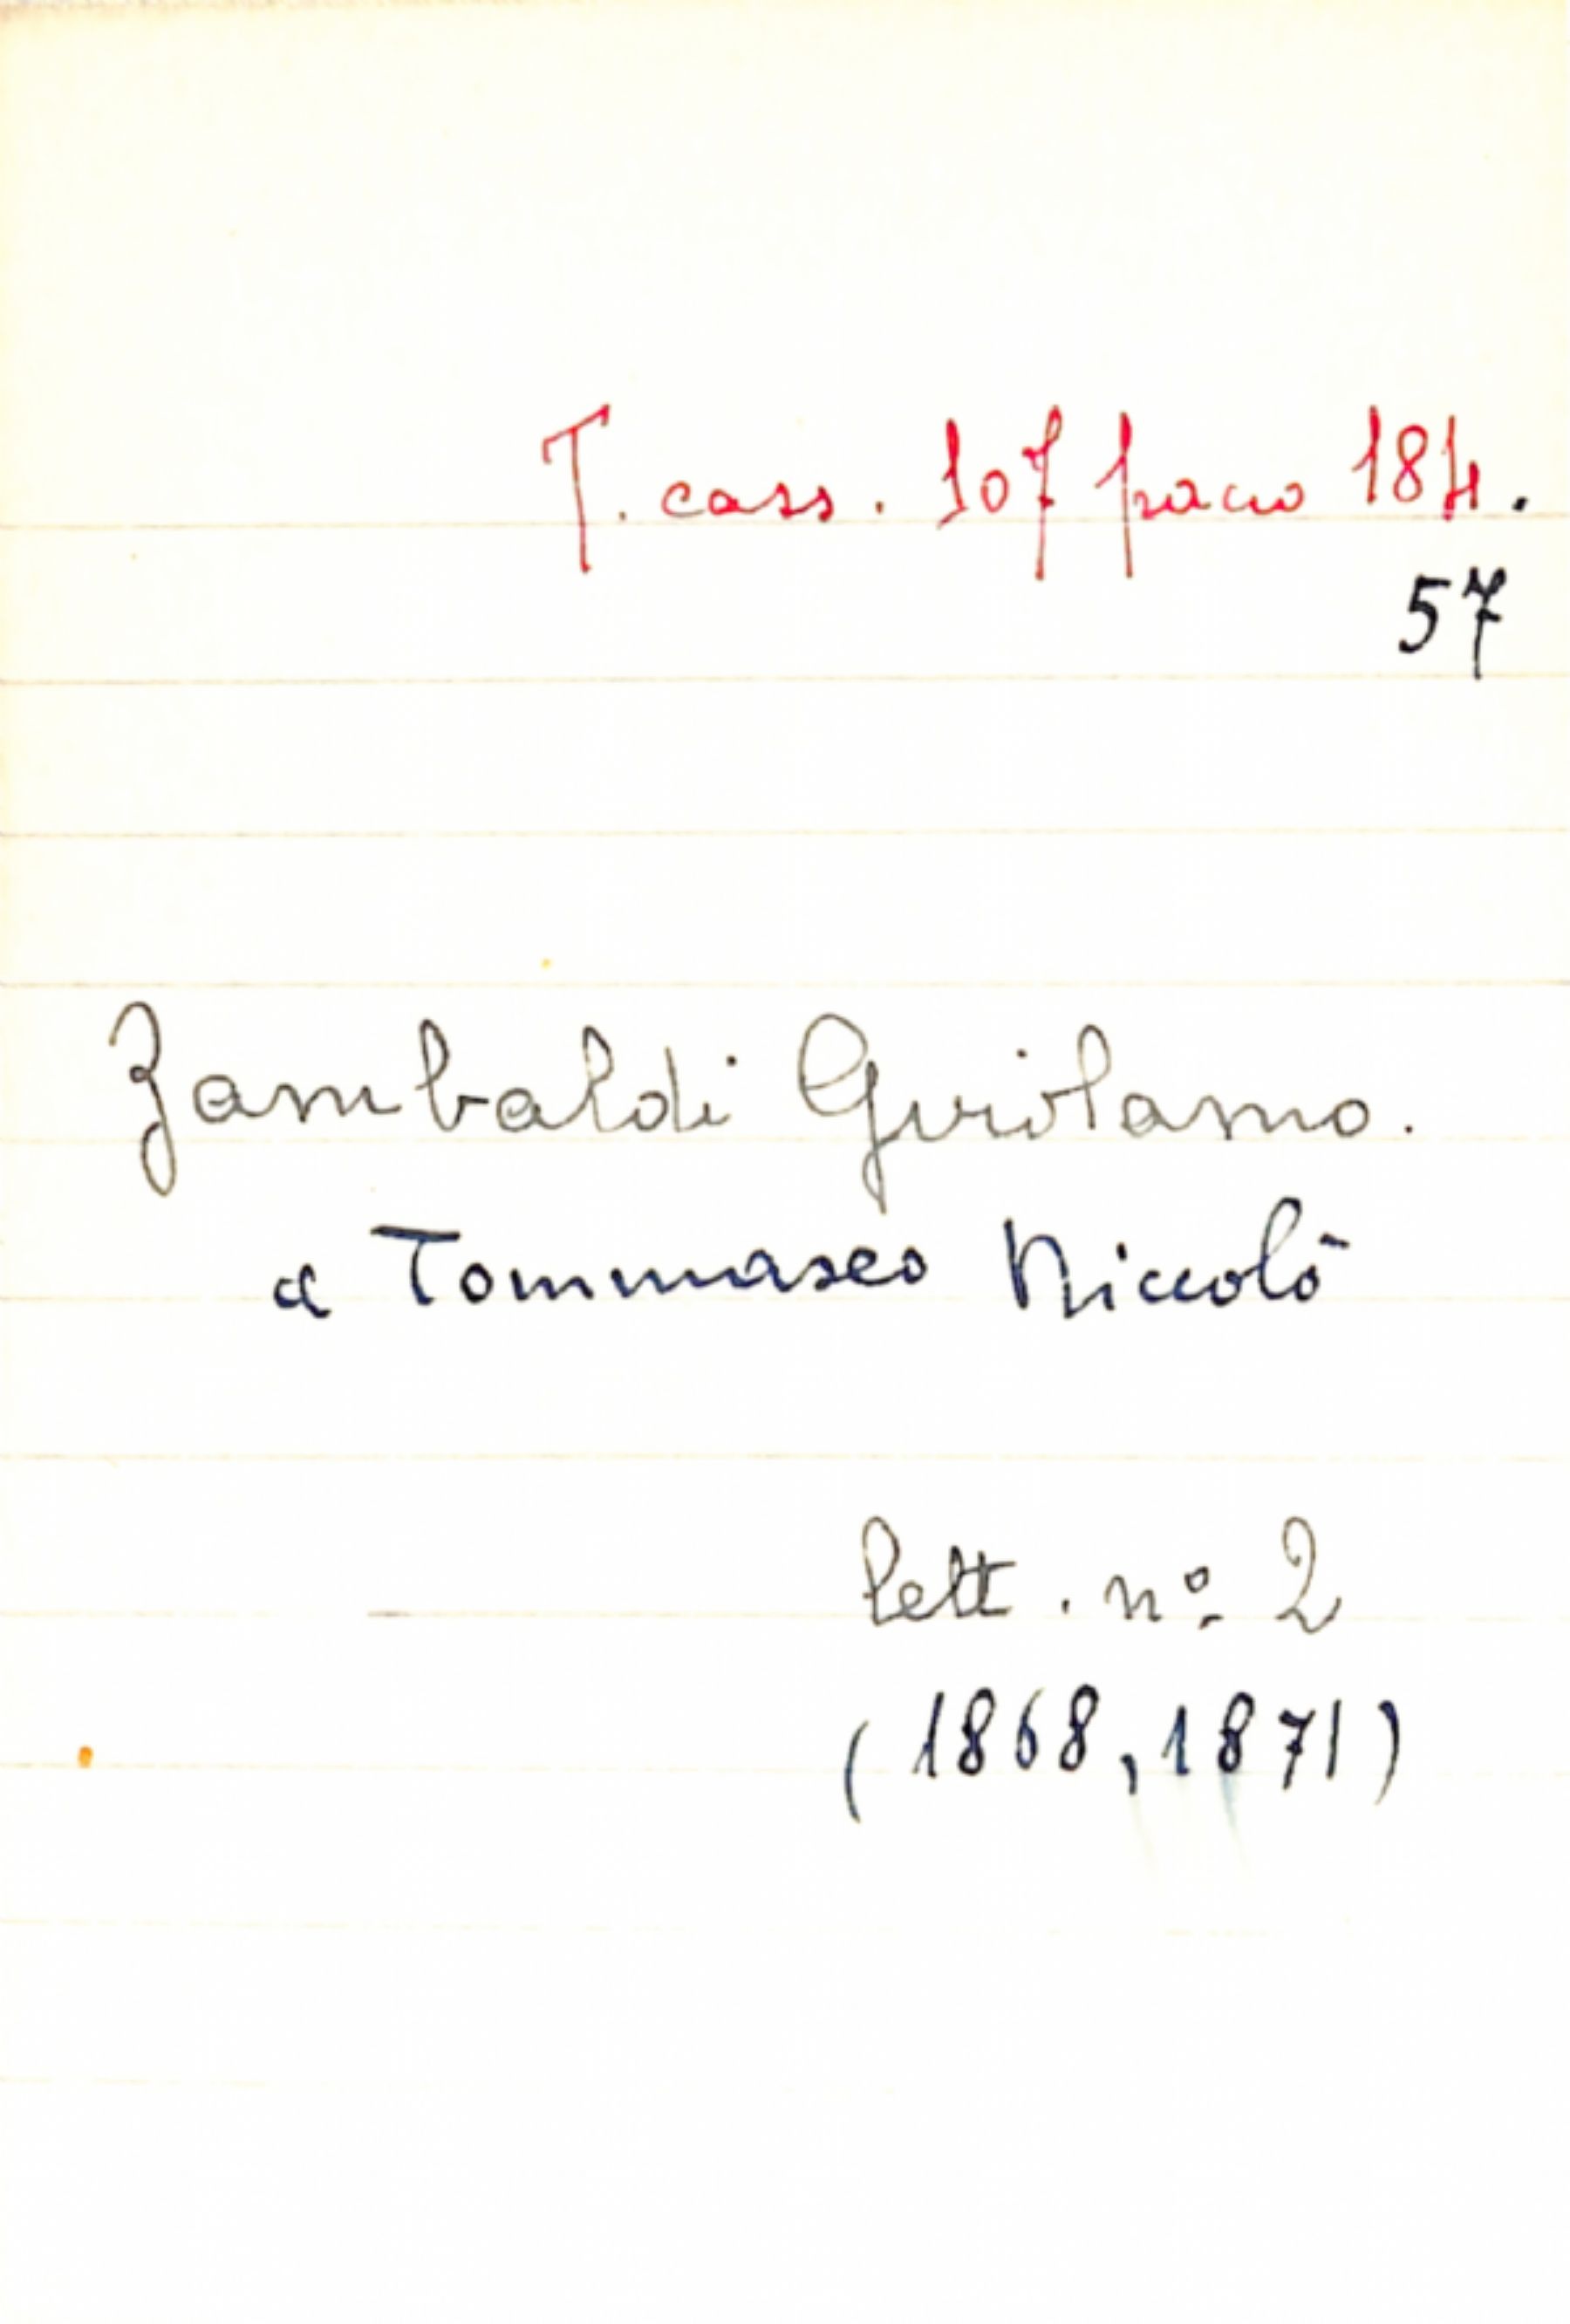 T. cass. 107 pacco 184.
57
Zambaldi Girolamo.
a Tommaseo Niccolò
lett. nº 2
(1868, 1871)